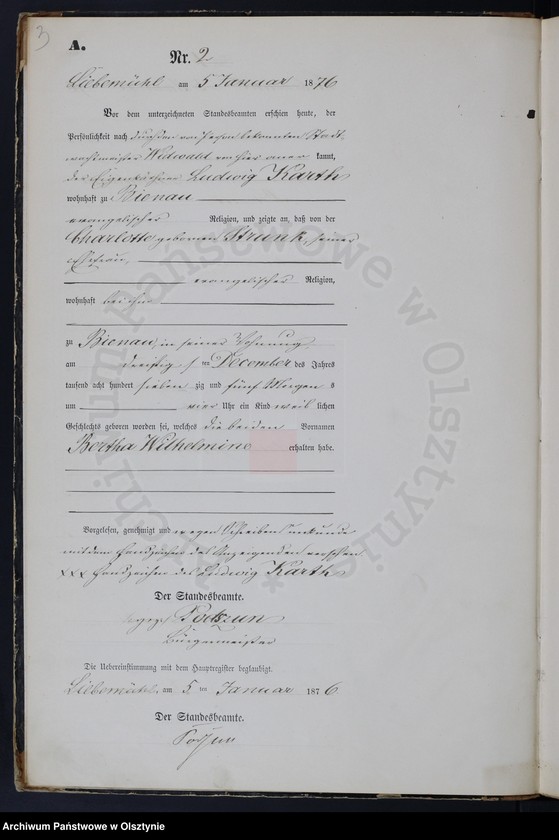 3
A.
Nr. 2
Liebemühl am 5 Januar 1876
Vor dem unterzeichneten Standesbeamten erschien heute, der
Persönlichkeit nach durch den von Person bekannten Stadt-
wachtmeister Widwald von hier aner kannt,
der Eigenkäthner Ludwig Karth
wohnhaft zu Bienau
evangelischer Religion, und zeigte an, daß von der
Charlotte geborenen Strunk, seiner
Ehefrau,
evangelischer Religion,
wohnhaft bei ihm
zu Bienau, in seiner Wohnung
am dreißig sten December des Jahres
tausend acht hundert sieben zig und fünf Morgens
um vier Uhr ein Kind weib lichen
Geschlechts geboren worden sei, welches die beiden Vornamen
Bertha Wilhelmine erhalten habe.
Vorgelesen, genehmigt und wegen Schreibens unkunde
mit dem Handzeichen des Anzeigenden versehen
XXX Handzeichen des Ludwig Karth
Der Standesbeamte.
gez. Podszun
Bürgermeister
Die Uebereinstimmung mit dem Hauptregister beglaubigt.
Liebemühl am 5 ten Januar 1876
Der Standesbeamte.
Podszun
Archiwum Państwowe w Olsztynie
Archiwum Państwowe w Olsztynie